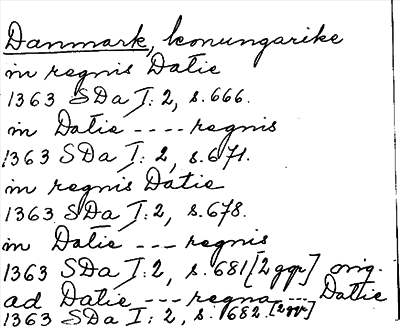 Danmark, konungarike
in regnis Datie
1363 SDa I: 2, s. 666.
in Datie ---- regnis
1363 SDa I: 2, s. 671.
in regnis Datie
1363 SDa I: 2, s. 678.
in Datie --- regnis
1363 SDa I: 2, s. 681 [2ggr] orig.
ad Datie --- regna --- Dattie
1363 SDa I: 2, s. 682. [2ggr]